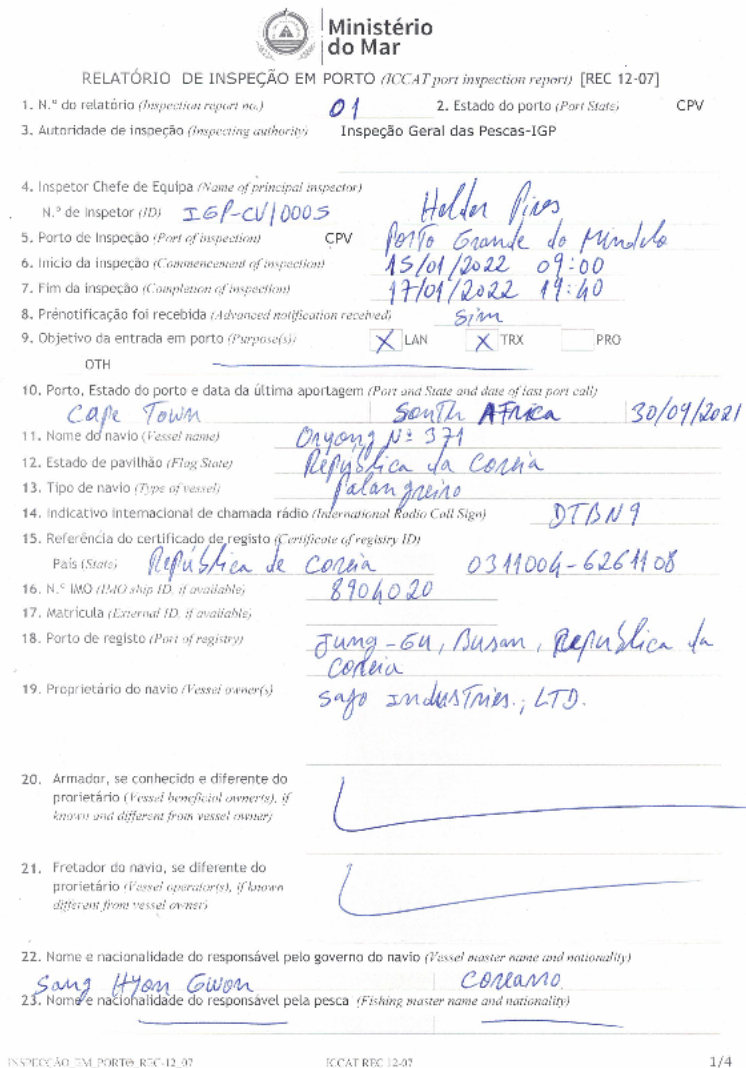 Ministério
do Mar
RELATÓRIO DE INSPEÇÃO EM PORTO (ICCAT port inspection report) [REC 12-07]
1. N.º do relatório (Inspection report no.) 01 2. Estado do porto (Port State) CPV
3. Autoridade de inspeção (Inspecting authority) Inspeção Geral das Pescas-IGP
4. Inspetor Chefe de Equipa (Name of principal inspector)
N.º de Inspetor (ID) IGP-CV/0005 Helder Pires
5. Porto de Inspeção (Port of inspection) CPV Porto Grande do Mindelo
6. Início da inspeção (Commencement of inspection) 15/01/2022 09:00
7. Fim da inspeção (Completion of inspection) 17/01/2022 19:40
8. Prénotificação foi recebida (Advanced notification received) Sim
9. Objetivo da entrada em porto (Purpose(s)) X LAN X TRX PRO
OTH
10. Porto, Estado do porto e data da última aportagem (Port and State and date of last port call)
Cape Town South Africa 30/09/2021
11. Nome do navio (Vessel name) Oryong Nº 371
12. Estado de pavilhão (Flag State) República da Coreia
13. Tipo de navio (Type of vessel) Palangreiro
14. Indicativo internacional de chamada rádio (International Radio Call Sign) DTBN9
15. Referência do certificado de registo (Certificate of registry ID)
País (State) República de Coreia 0311004-6261108
16. N.º IMO (IMO ship ID, if available) 8904020
17. Matrícula (External ID, if available)
18. Porto de registo (Port of registry) Jung-Gu, Busan, República da
Coreia
19. Proprietário do navio (Vessel owner(s)) Sajo Industries., LTD.
20. Armador, se conhecido e diferente do
prorietário (Vessel beneficial owner(s), if
known and different from vessel owner)
21. Fretador do navio, se diferente do
prorietário (Vessel operator(s), if known
different from vessel owner)
22. Nome e nacionalidade do responsável pelo governo do navio (Vessel master name and nationality)
Sang Hyon Gwon Coreano
23. Nome e nacionalidade do responsável pela pesca (Fishing master name and nationality)
INSPECÇÃO_EM_PORTO_REC-12_07 ICCAT REC 12-07 1/4